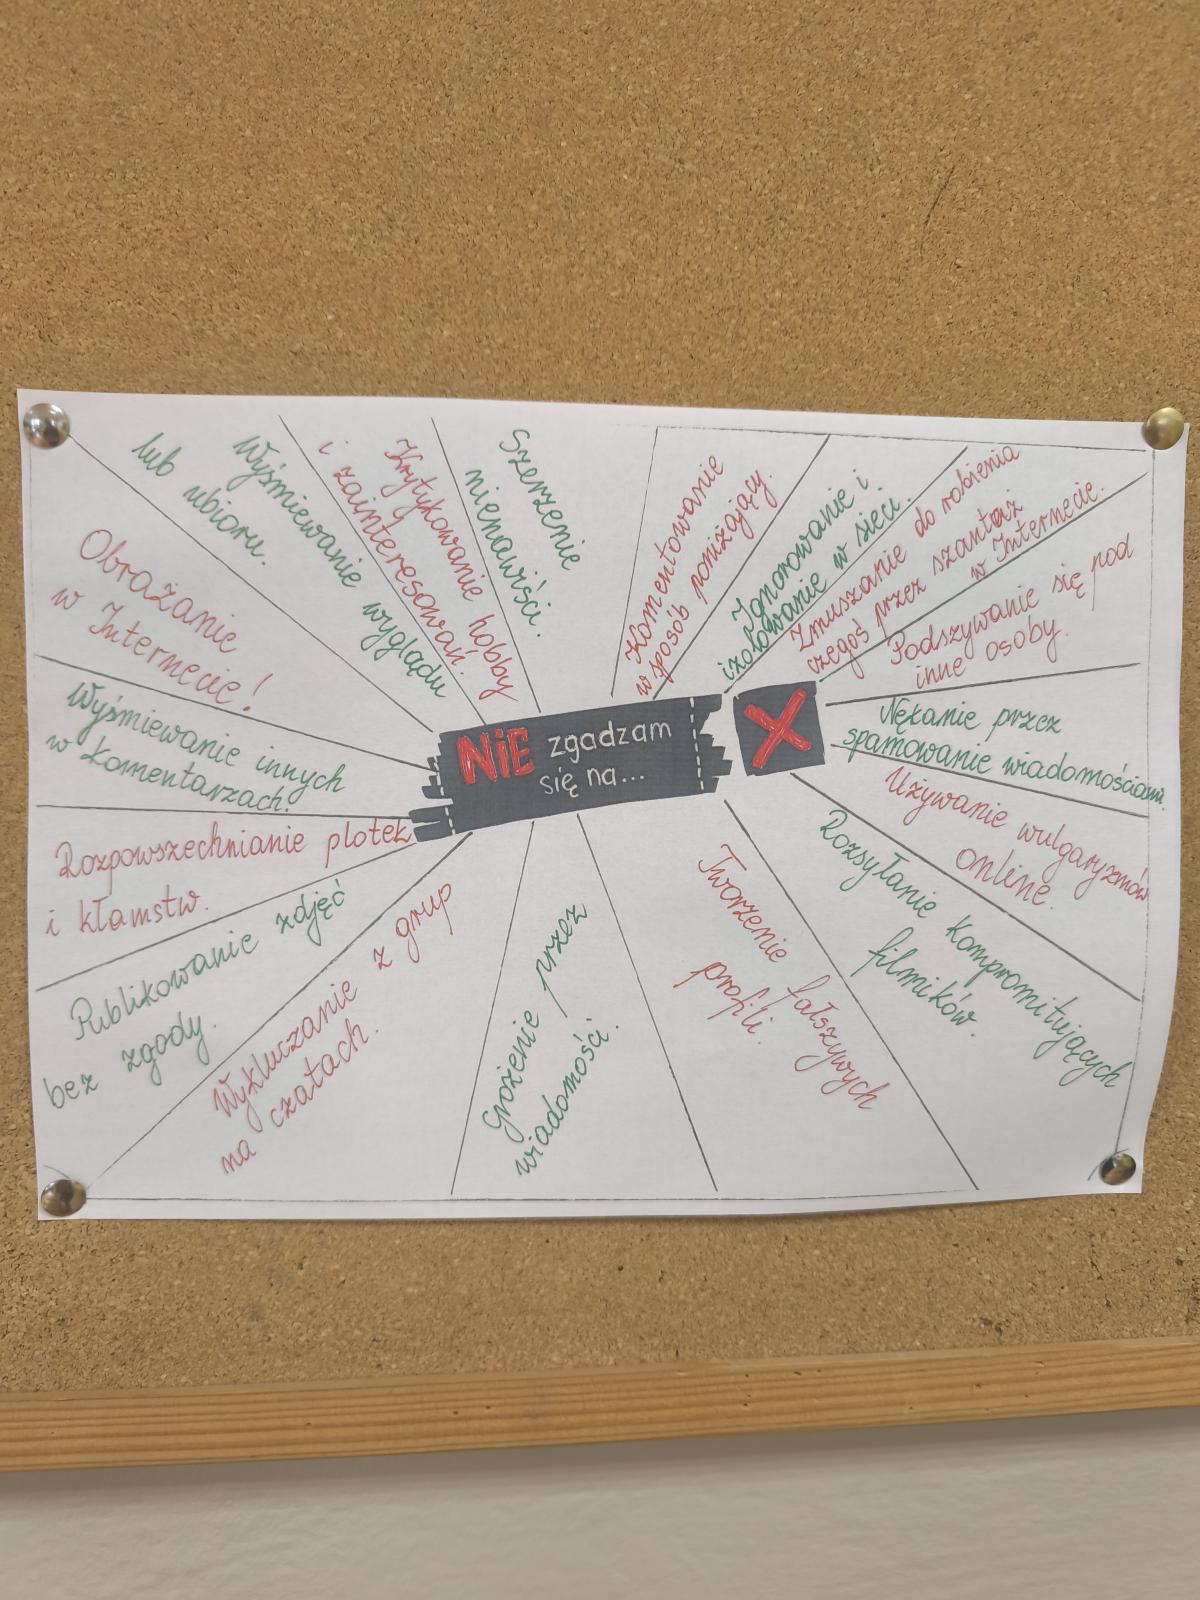 NIE zgadzam
się na...
Obrażanie
w Internecie!
Wyśmiewanie wyglądu
lub ubioru.
Krytykowanie hobby
i zainteresowań.
Szerzenie
nienawiści.
Komentowanie
w sposób poniżający.
Ignorowanie i
izolowanie w sieci.
Zmuszanie do robienia
czegoś przez szantaż
w Internecie.
Podszywanie się pod
inne osoby.
Nękanie przez
spamowanie wiadomościami.
Używanie wulgaryzmów
online.
Rozsyłanie kompromitujących
filmików.
Tworzenie fałszywych
profili.
Grożenie przez
wiadomości.
Wykluczanie z grup
na czatach.
Publikowanie zdjęć
bez zgody.
Rozpowszechnianie plotek
i kłamstw.
Wyśmiewanie innych
w komentarzach.